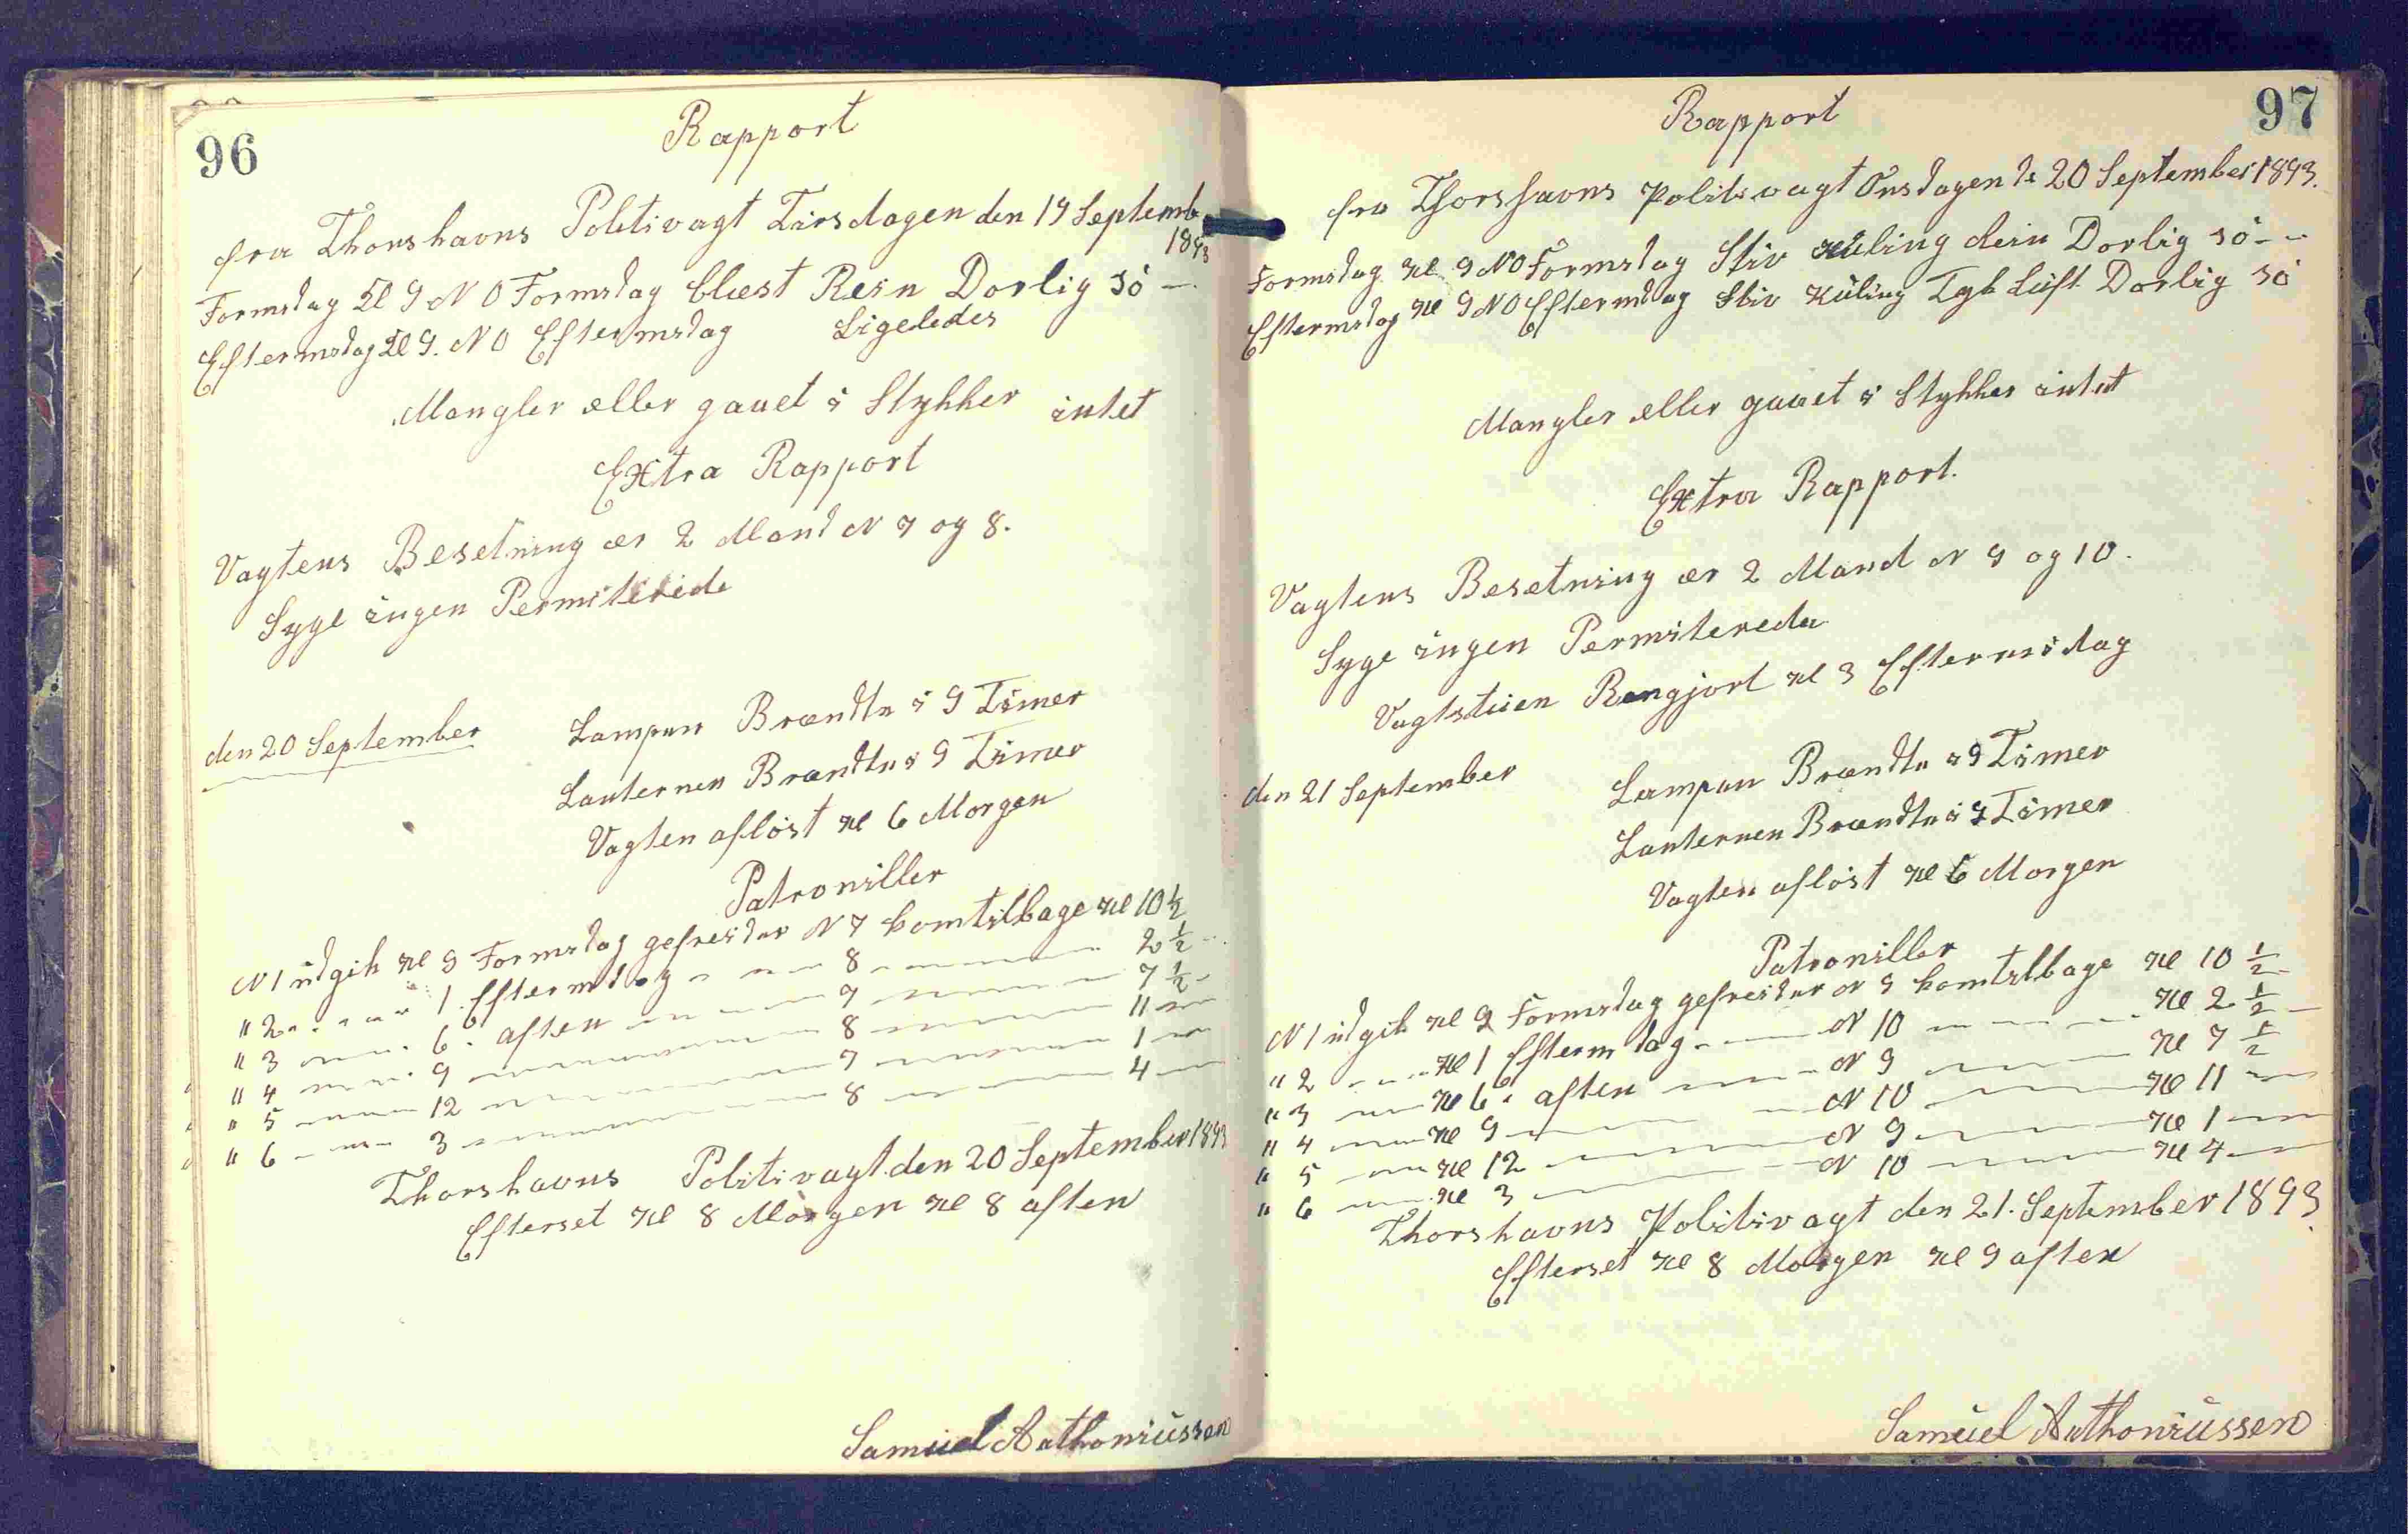 96
Rapport
fra Thorshavns Politivagt Tirsdagen den 19 Septemb
1893
Formidag Kl 9 N O Formidag blæst Rein Dorlig sö —
Eftermidag Kl 9. N O Eftermidag Ligeledes
Mangler eller gaaet i Stykker intet
Extra Rapport
Vagtens Besetning er 2 Mand N 7 og 8.
Syge ingen Permiterede
den 20 September Lampen Brændte i 9 Timer
Lanternen Brændte i 9 Timer
Vagten aflöst Kl 6 Morgen
Patroniller
N 1 udgik Kl 9 Formidag gefreider N 7 komtilbage Kl 10 ½
" 2 " " " 1 Eftermidag " — 8 — 2 ½
" 3 — " 6 " aften — 7 — 7 ½
" 4 — " 9 — 8 — 11 —
" 5 — 12 — 7 — 1 —
" 6 — 3 — 8 — 4 —
Thorshavns Politivagt den 20 September 1893
Efterset Kl 8 Morgen Kl 8 aften
Samuel Anthoniussen
97
Rapport
fra Thorshavns Politivagt Onsdagen de 20 September 1893.
Formidag Kl 9 N O Formidag Stiv Kuling Rein Dorlig sö —
Eftermidag Kl 9 N O Eftermidag Stiv Kuling Tyk Luft Dorlig sö
Mangler eller gaaet i Stykker intet
Extra Rapport.
Vagtens Besetning er 2 Mand N 9 og 10.
Syge ingen Permiterede
Vagtstuen Rengjort Kl 3 Eftermidag
den 21 September Lampen Brændte i 9 Timer
Lanternen Brændte i 9 Timer
Vagten aflöst Kl 6 Morgen
Patroniller
N 1 udgik Kl 9 Formidag gefreider N 9 komtilbage Kl 10 ½
" 2 — Kl 1 Eftermidag — N 10 — Kl 2 ½
" 3 — Kl 6 " aften — N 9 — Kl 7 ½
" 4 — Kl 9 — N 10 — Kl 11 —
" 5 — Kl 12 — N 9 — Kl 1 —
" 6 — Kl 3 — N 10 — Kl 4 —
Thorshavns Politivagt den 21. September 1893
Efterset Kl 8 Morgen Kl 9 aften
Samuel Anthoniussen